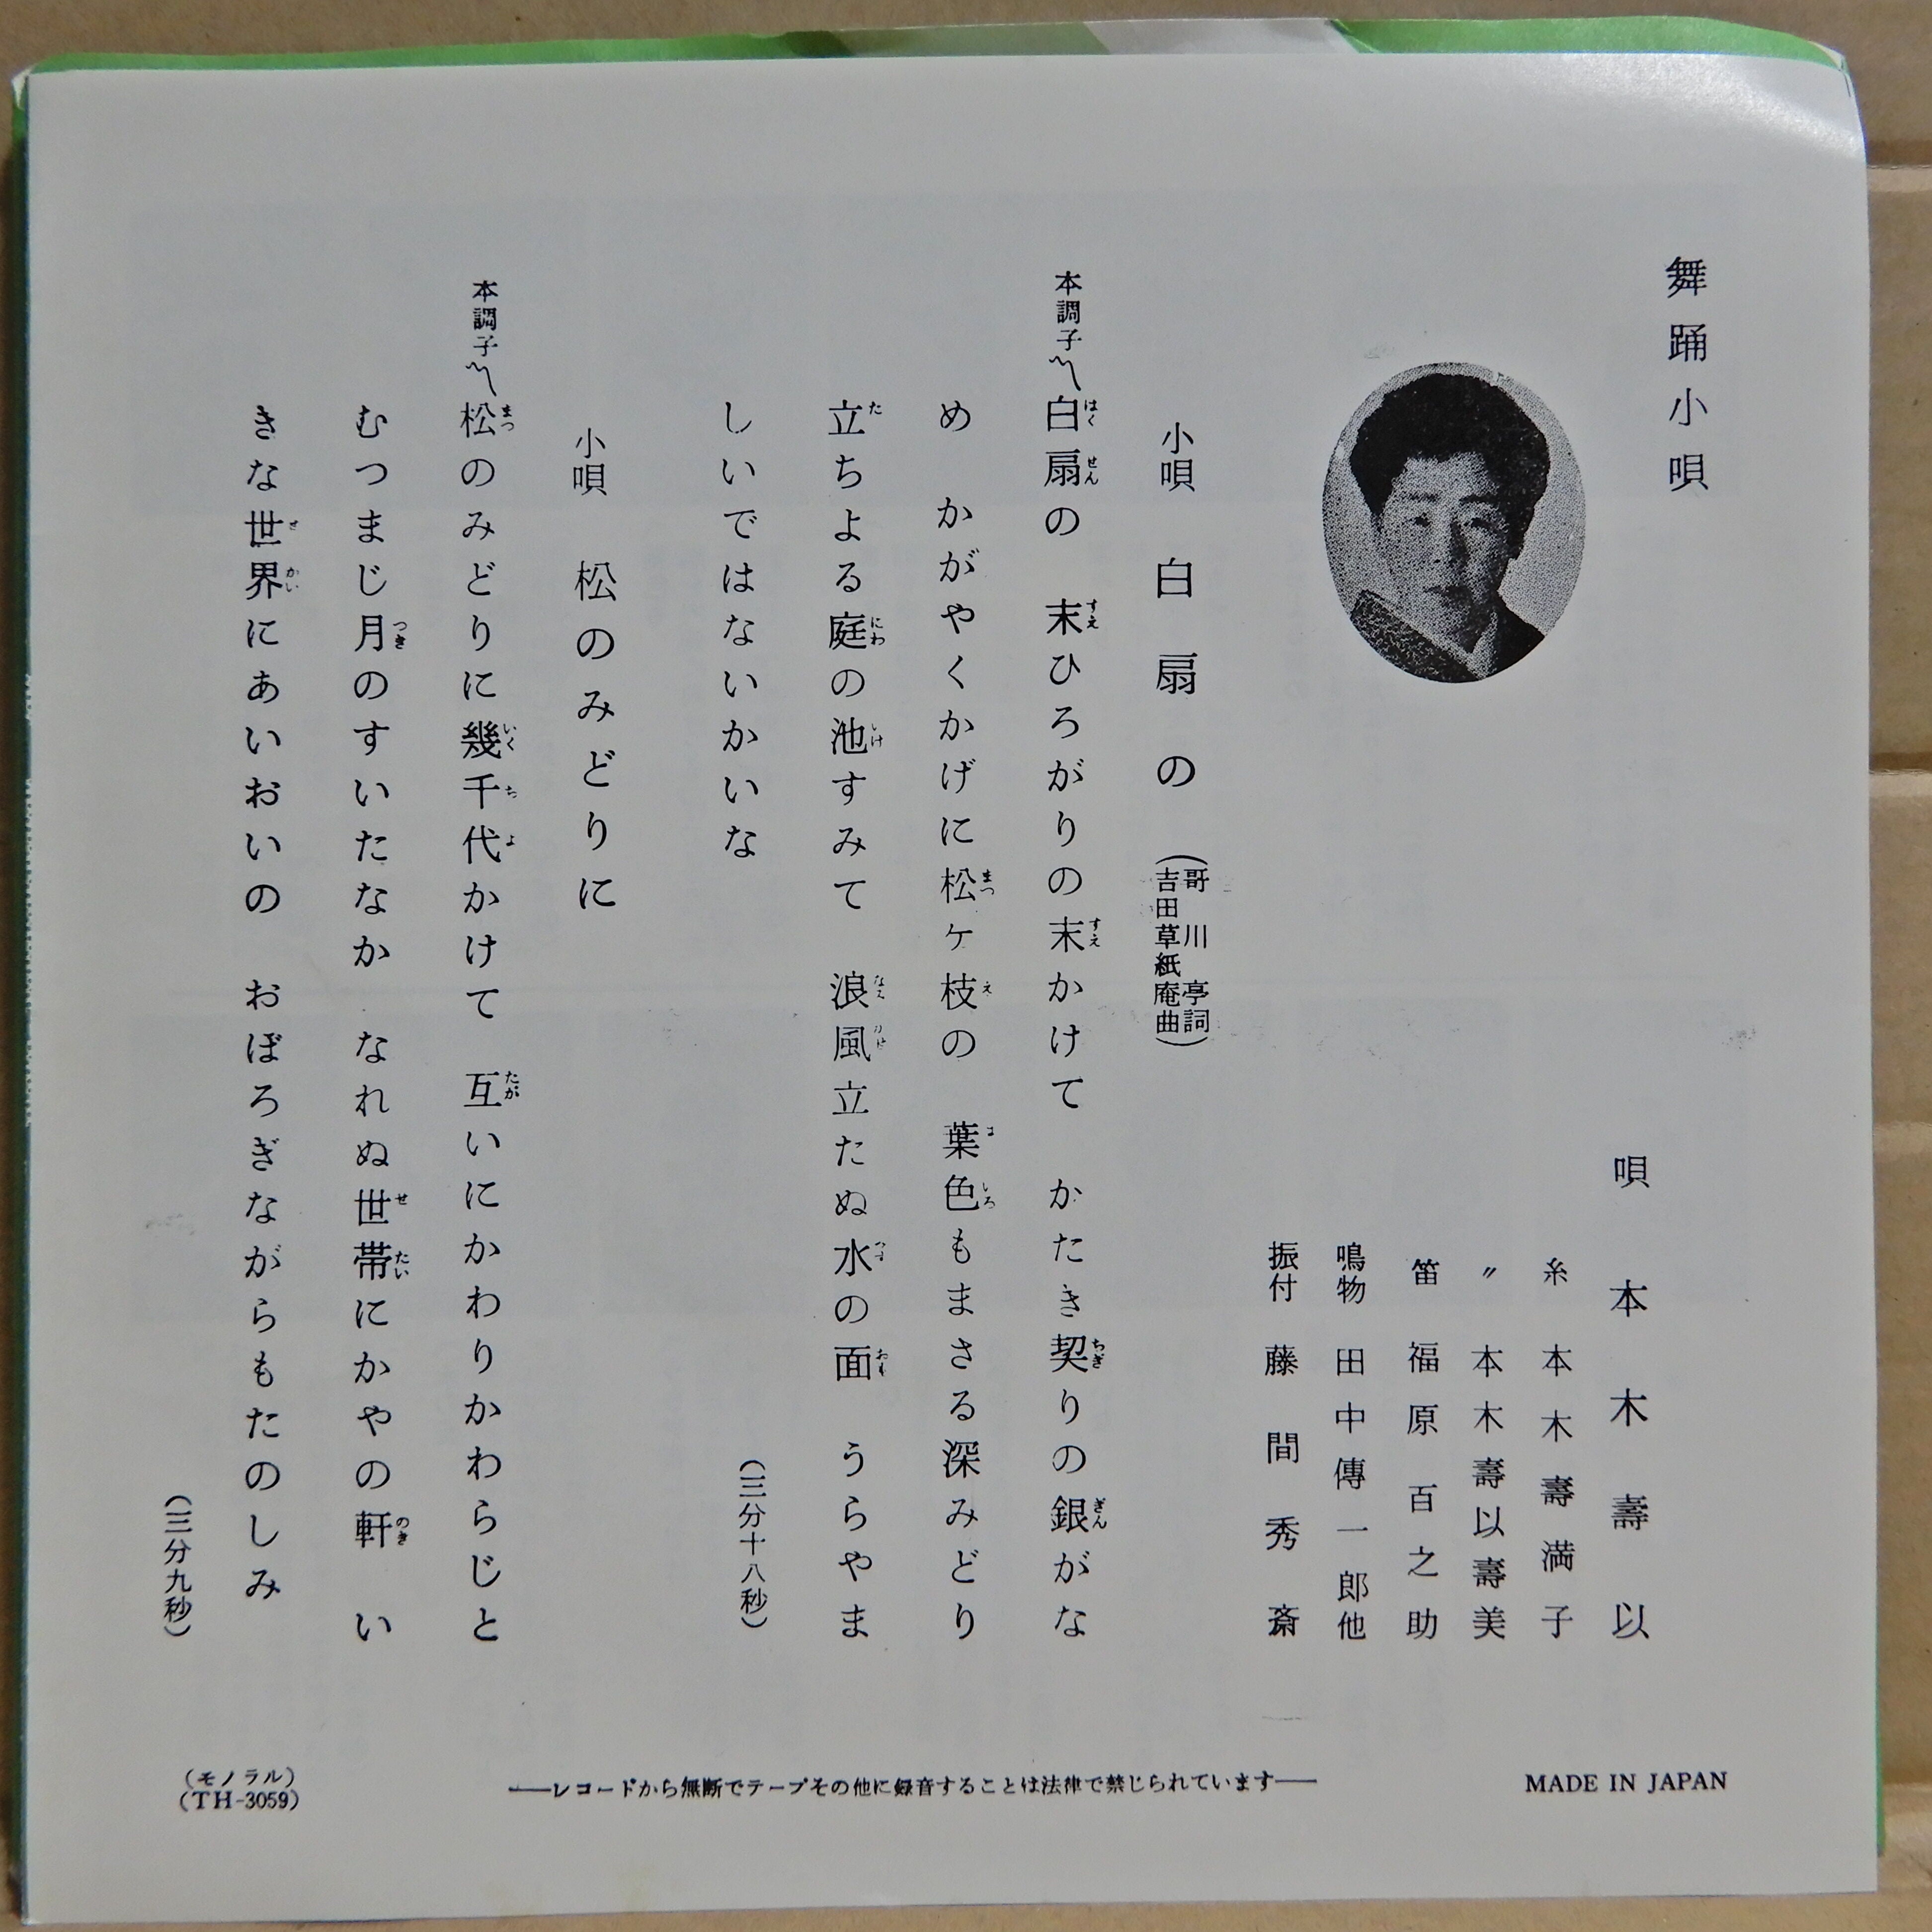 舞踊小唄
唄 本木壽以
糸 本木壽満子
〃 本木壽以壽美
笛 福原百之助
鳴物 田中傳一郎他
振付 藤間秀斎
小唄 白扇の (哥川亭詞
吉田草紙庵曲)
本調子〽白扇の 末ひろがりの末かけて かたき契りの銀がな
め かがやくかげに松ヶ枝の 葉色もまさる深みどり
立ちよる庭の池すみて 浪風立たぬ水の面 うらやま
しいではないかいな
(三分十八秒)
小唄 松のみどりに
本調子〽松のみどりに幾千代かけて 互いにかわりかわらじと
むつまじ月のすいたなか なれぬ世帯にかやの軒 い
きな世界にあいおいの おぼろぎながらもたのしみ
(三分九秒)
(モノラル)
(TH-3059)
──レコードから無断でテープその他に録音することは法律で禁じられています──
MADE IN JAPAN